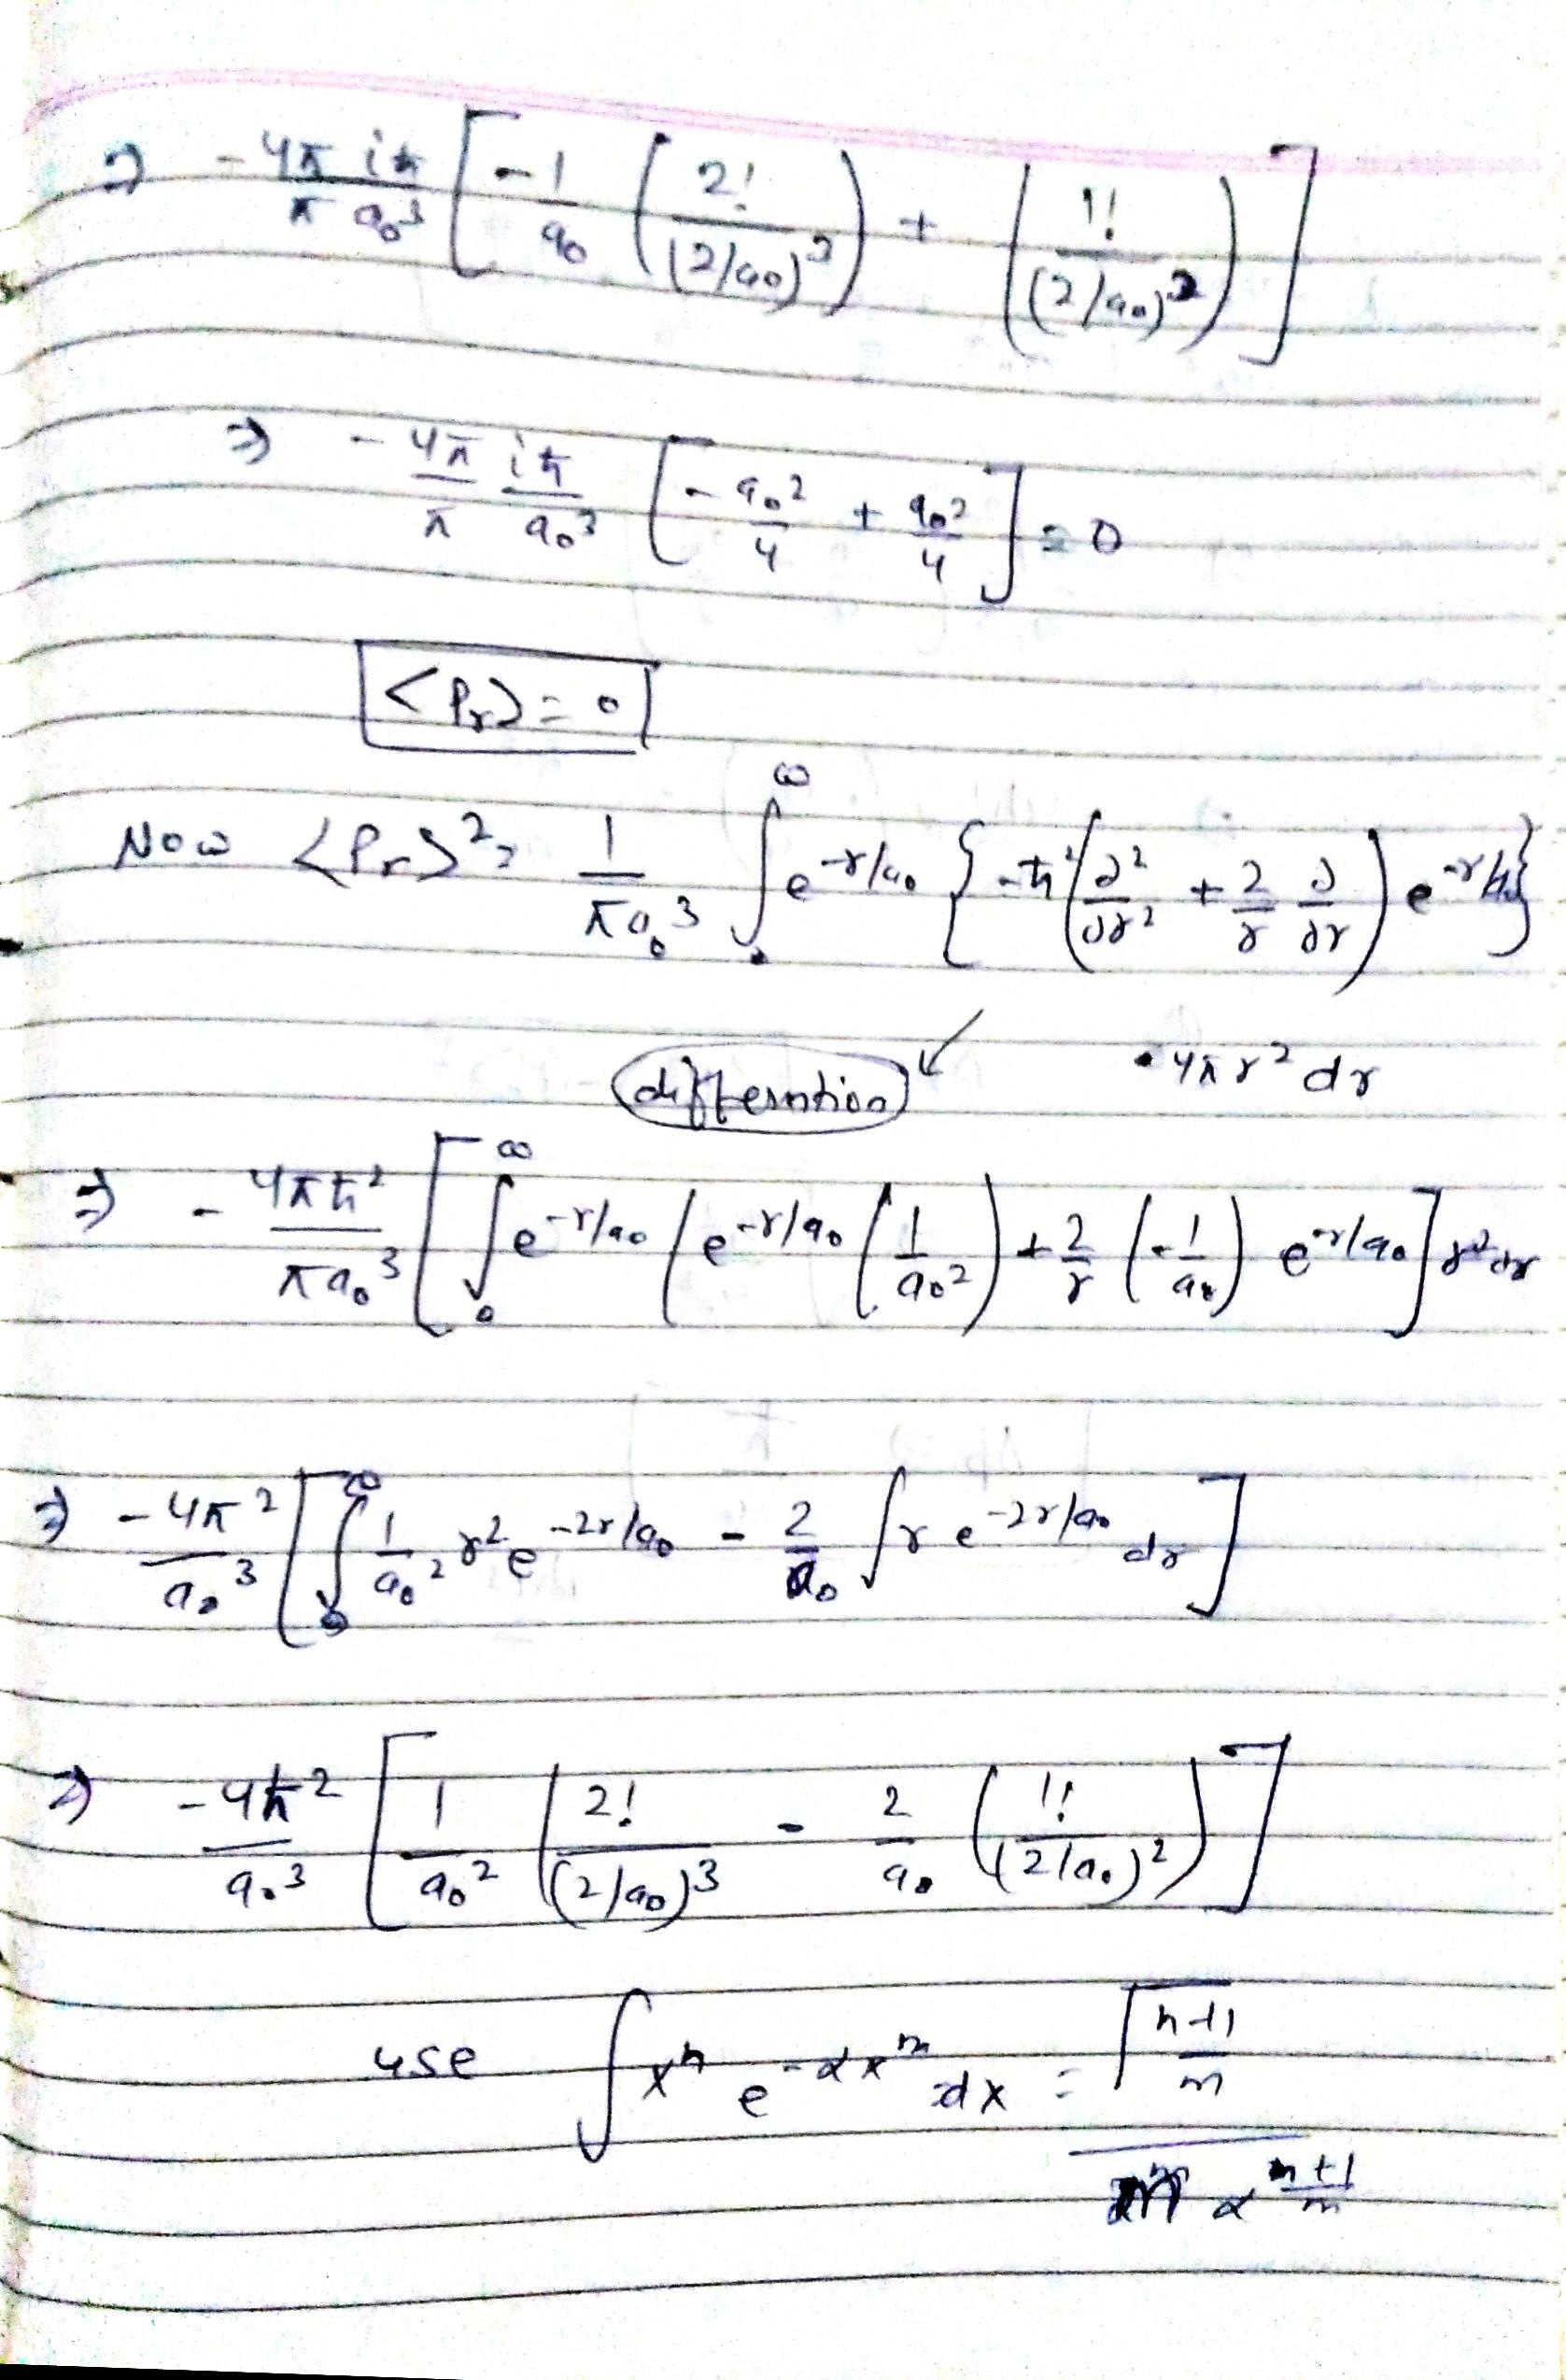 ⇒ -4π/π iħ/a₀³ [ -1/a₀ ( 2!/(2/a₀)³ ) + ( 1!/(2/a₀)² ) ]
⇒ -4π/π iħ/a₀³ [ -a₀²/4 + a₀²/4 ] = 0
<Pr> = 0
Now <Pr>² = 1/πa₀³ ∫₀^∞ e^{-r/a₀} { -ħ² ( ∂²/∂r² + 2/r ∂/∂r ) e^{-r/a₀} }
• 4πr² dr
differntion
⇒ -4πħ²/πa₀³ [ ∫₀^∞ e^{-r/a₀} ( e^{-r/a₀} ( 1/a₀² ) + 2/r ( -1/a₀ ) e^{-r/a₀} ] r² dr
⇒ -4π²/a₀³ [ ∫₀^∞ 1/a₀² r² e^{-2r/a₀} - 2/a₀ ∫ r e^{-2r/a₀} dr ]
⇒ -4ħ²/a₀³ [ 1/a₀² ( 2!/(2/a₀)³ - 2/a₀ ( 1!/(2/a₀)² ) ]
use ∫ xⁿ e^{-αx^m} dx = Γ (n+1)/m / m α^{(n+1)/m}